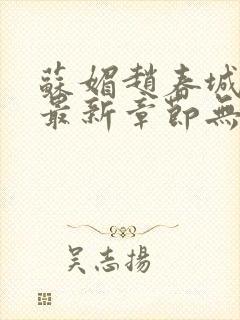 蘇媚趙春城
最新章節無
吳志揚